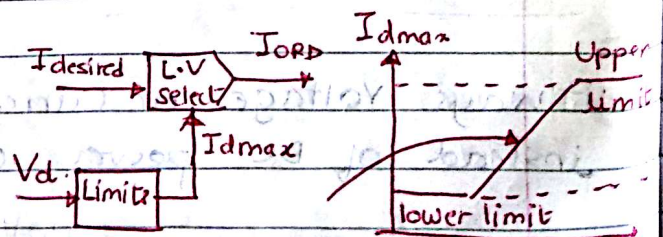 Idesired
L.V
select
IORD
Idmax
Vd
Limits
Idmax
Upper
limit
lower limit